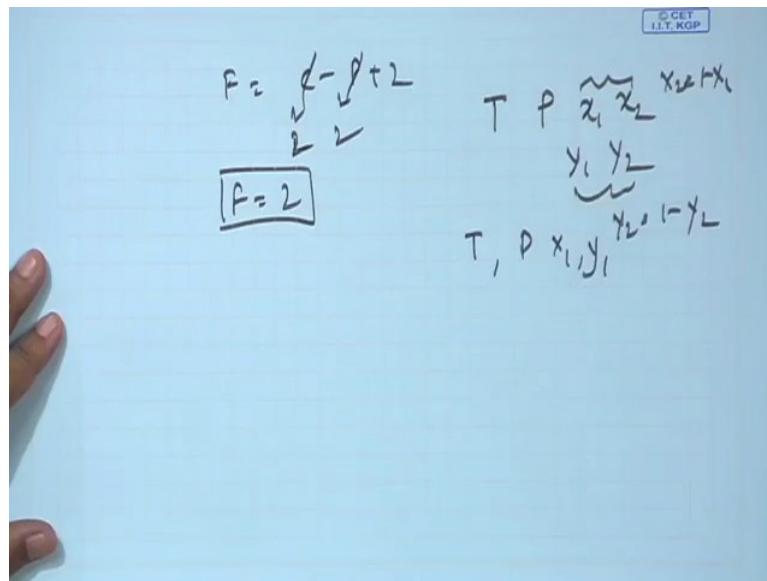 © CET
I.I.T. KGP
F = C - P + 2
2 2
F = 2
T P x₁ x₂ x₂ = 1-x₁
y₁ y₂
T, P x₁, y₁ y₂ = 1-y₂